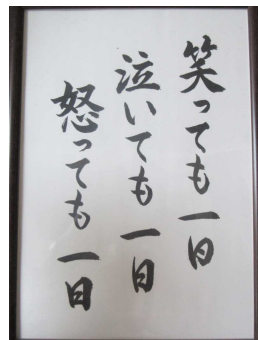 笑っても一日
泣いても一日
怒っても一日